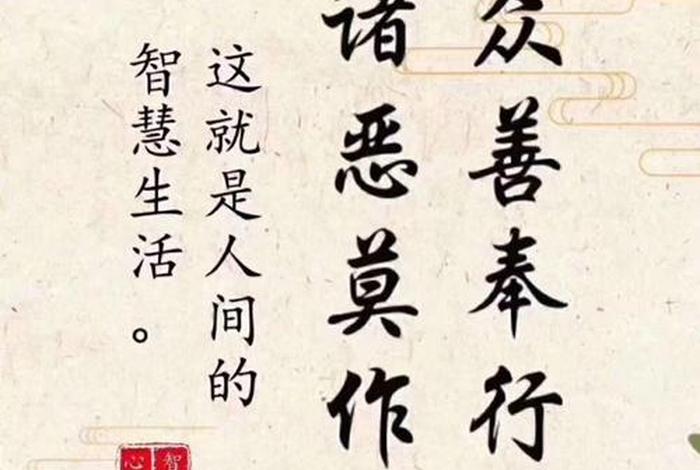 众善奉行
诸恶莫作
这就是人间的
智慧生活。
智
心